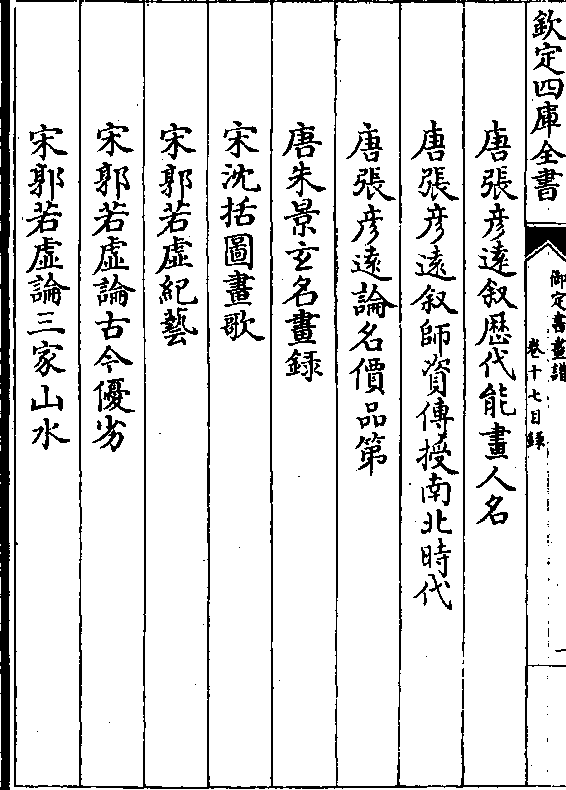 欽定四庫全書
御定書畫譜
卷十七目錄
一
唐張彦遠叙歴代能畫人名
唐張彦遠叙師資傳授南北時代
唐張彦遠論名價品第
唐朱景玄名畫録
宋沈括圖畫歌
宋郭若虛紀藝
宋郭若虛論古今優劣
宋郭若虛論三家山水